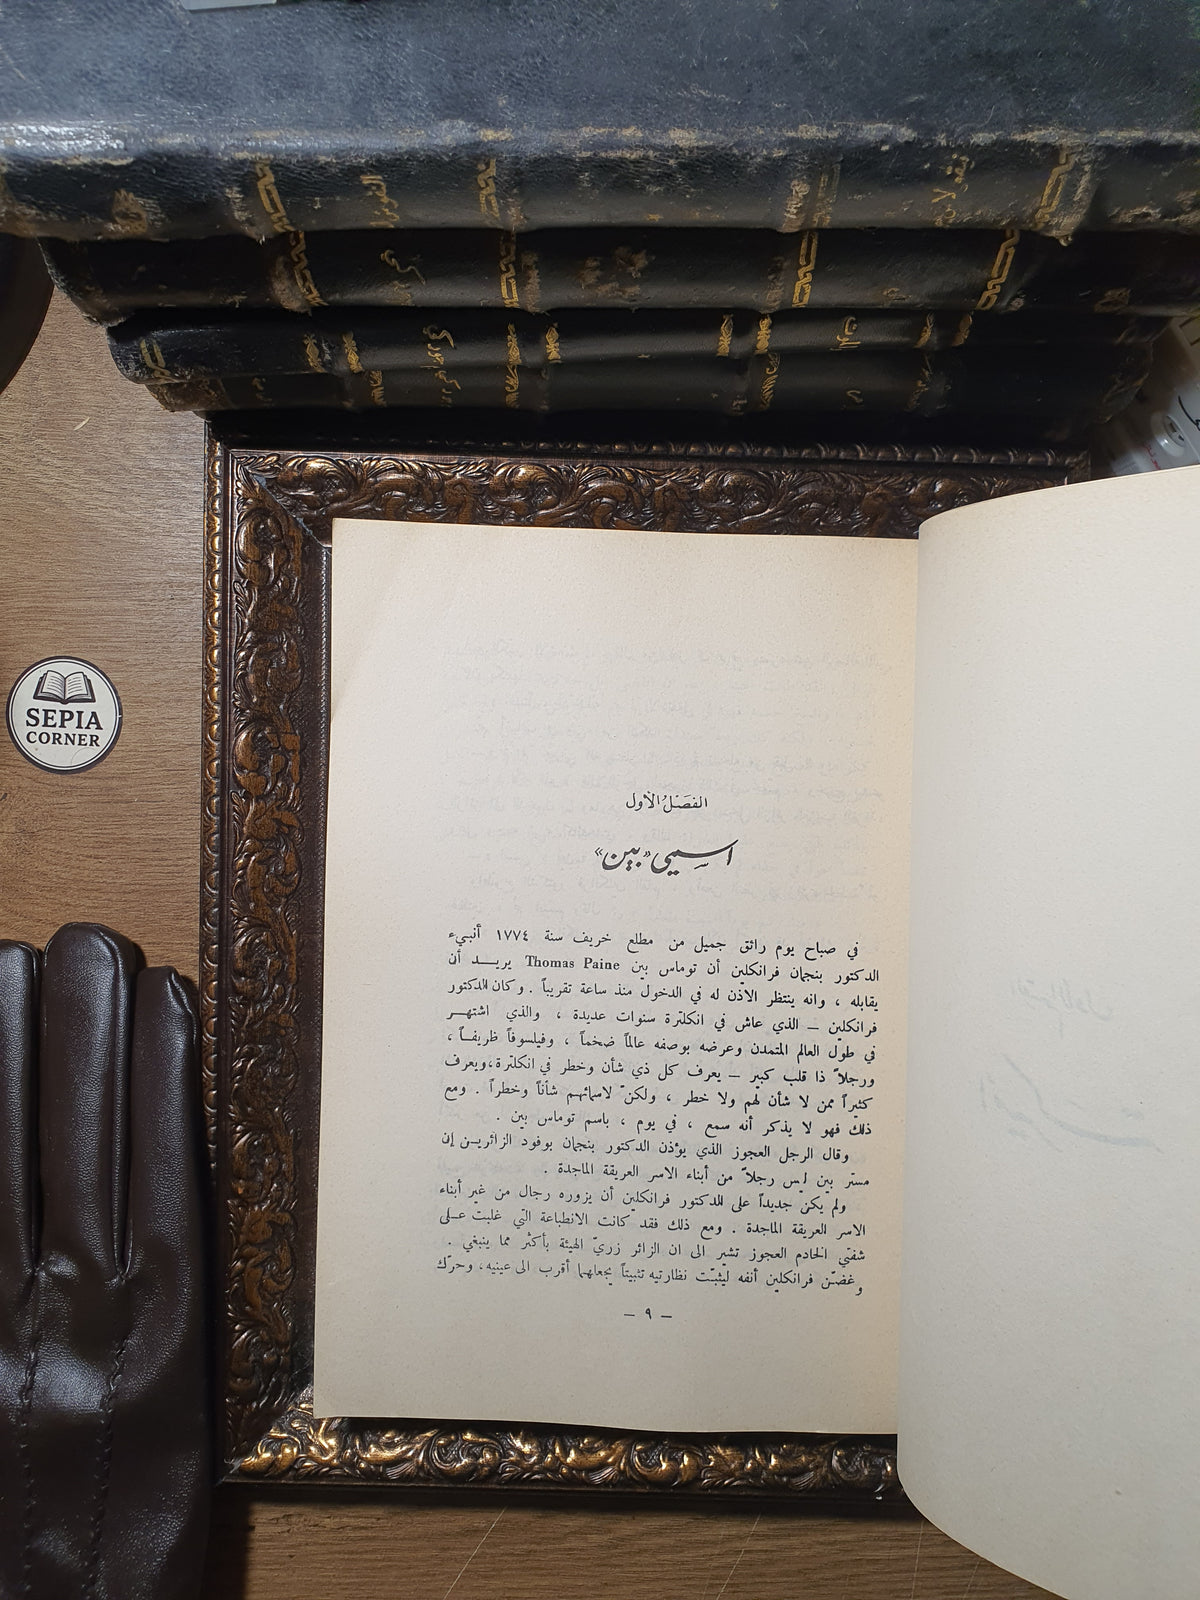 SEPIA
CORNER
الفصل الأول
اسمي «بين»
في صباح يوم رائق جميل من مطلع خريف سنة ١٧٧٤ أنبيء
الدكتور بنجمان فرانكلين أن توماس بين Thomas Paine يريــد أن
يقابله ، وانه ينتظر الاذن له في الدخول منذ ساعة تقريباً . وكان الدكتور
فرانكلين – الذي عاش في انكلترة سنوات عديدة ، والذي اشتهــر
في طول العالم المتمدن وعرضه بوصفه عالماً ضخماً ، وفيلسوفاً ظريفــاً ،
ورجلاً ذا قلب كبير – يعرف كل ذي شأن وخطر في انكلترة،ويعرف
كثيراً ممن لا شأن لهم ولا خطر ، ولكنّ لاسمائهم شأناً وخطراً . ومع
ذلك فهو لا يذكر أنه سمع ، في يوم ، باسم توماس بين .
وقال الرجل العجوز الذي يؤذن الدكتور بنجمان بوفود الزائريــن إن
مستر بين ليس رجلاً من أبناء الاسر العريقة الماجدة .
ولم يكن جديداً على الدكتور فرانكلين أن يزوره رجال من غير أبناء
الاسر العريقة الماجدة . ومع ذلك فقد كانت الانطباعة التي غلبت عــلى
شفتي الخادم العجوز تشير الى ان الزائر زريّ الهيئة بأكثر مما ينبغي .
وغضّن فرانكلين أنفه ليثبّت نظارتيه تثبيتاً يجعلهما أقرب الى عينيه، وحرّك
– ٩ –